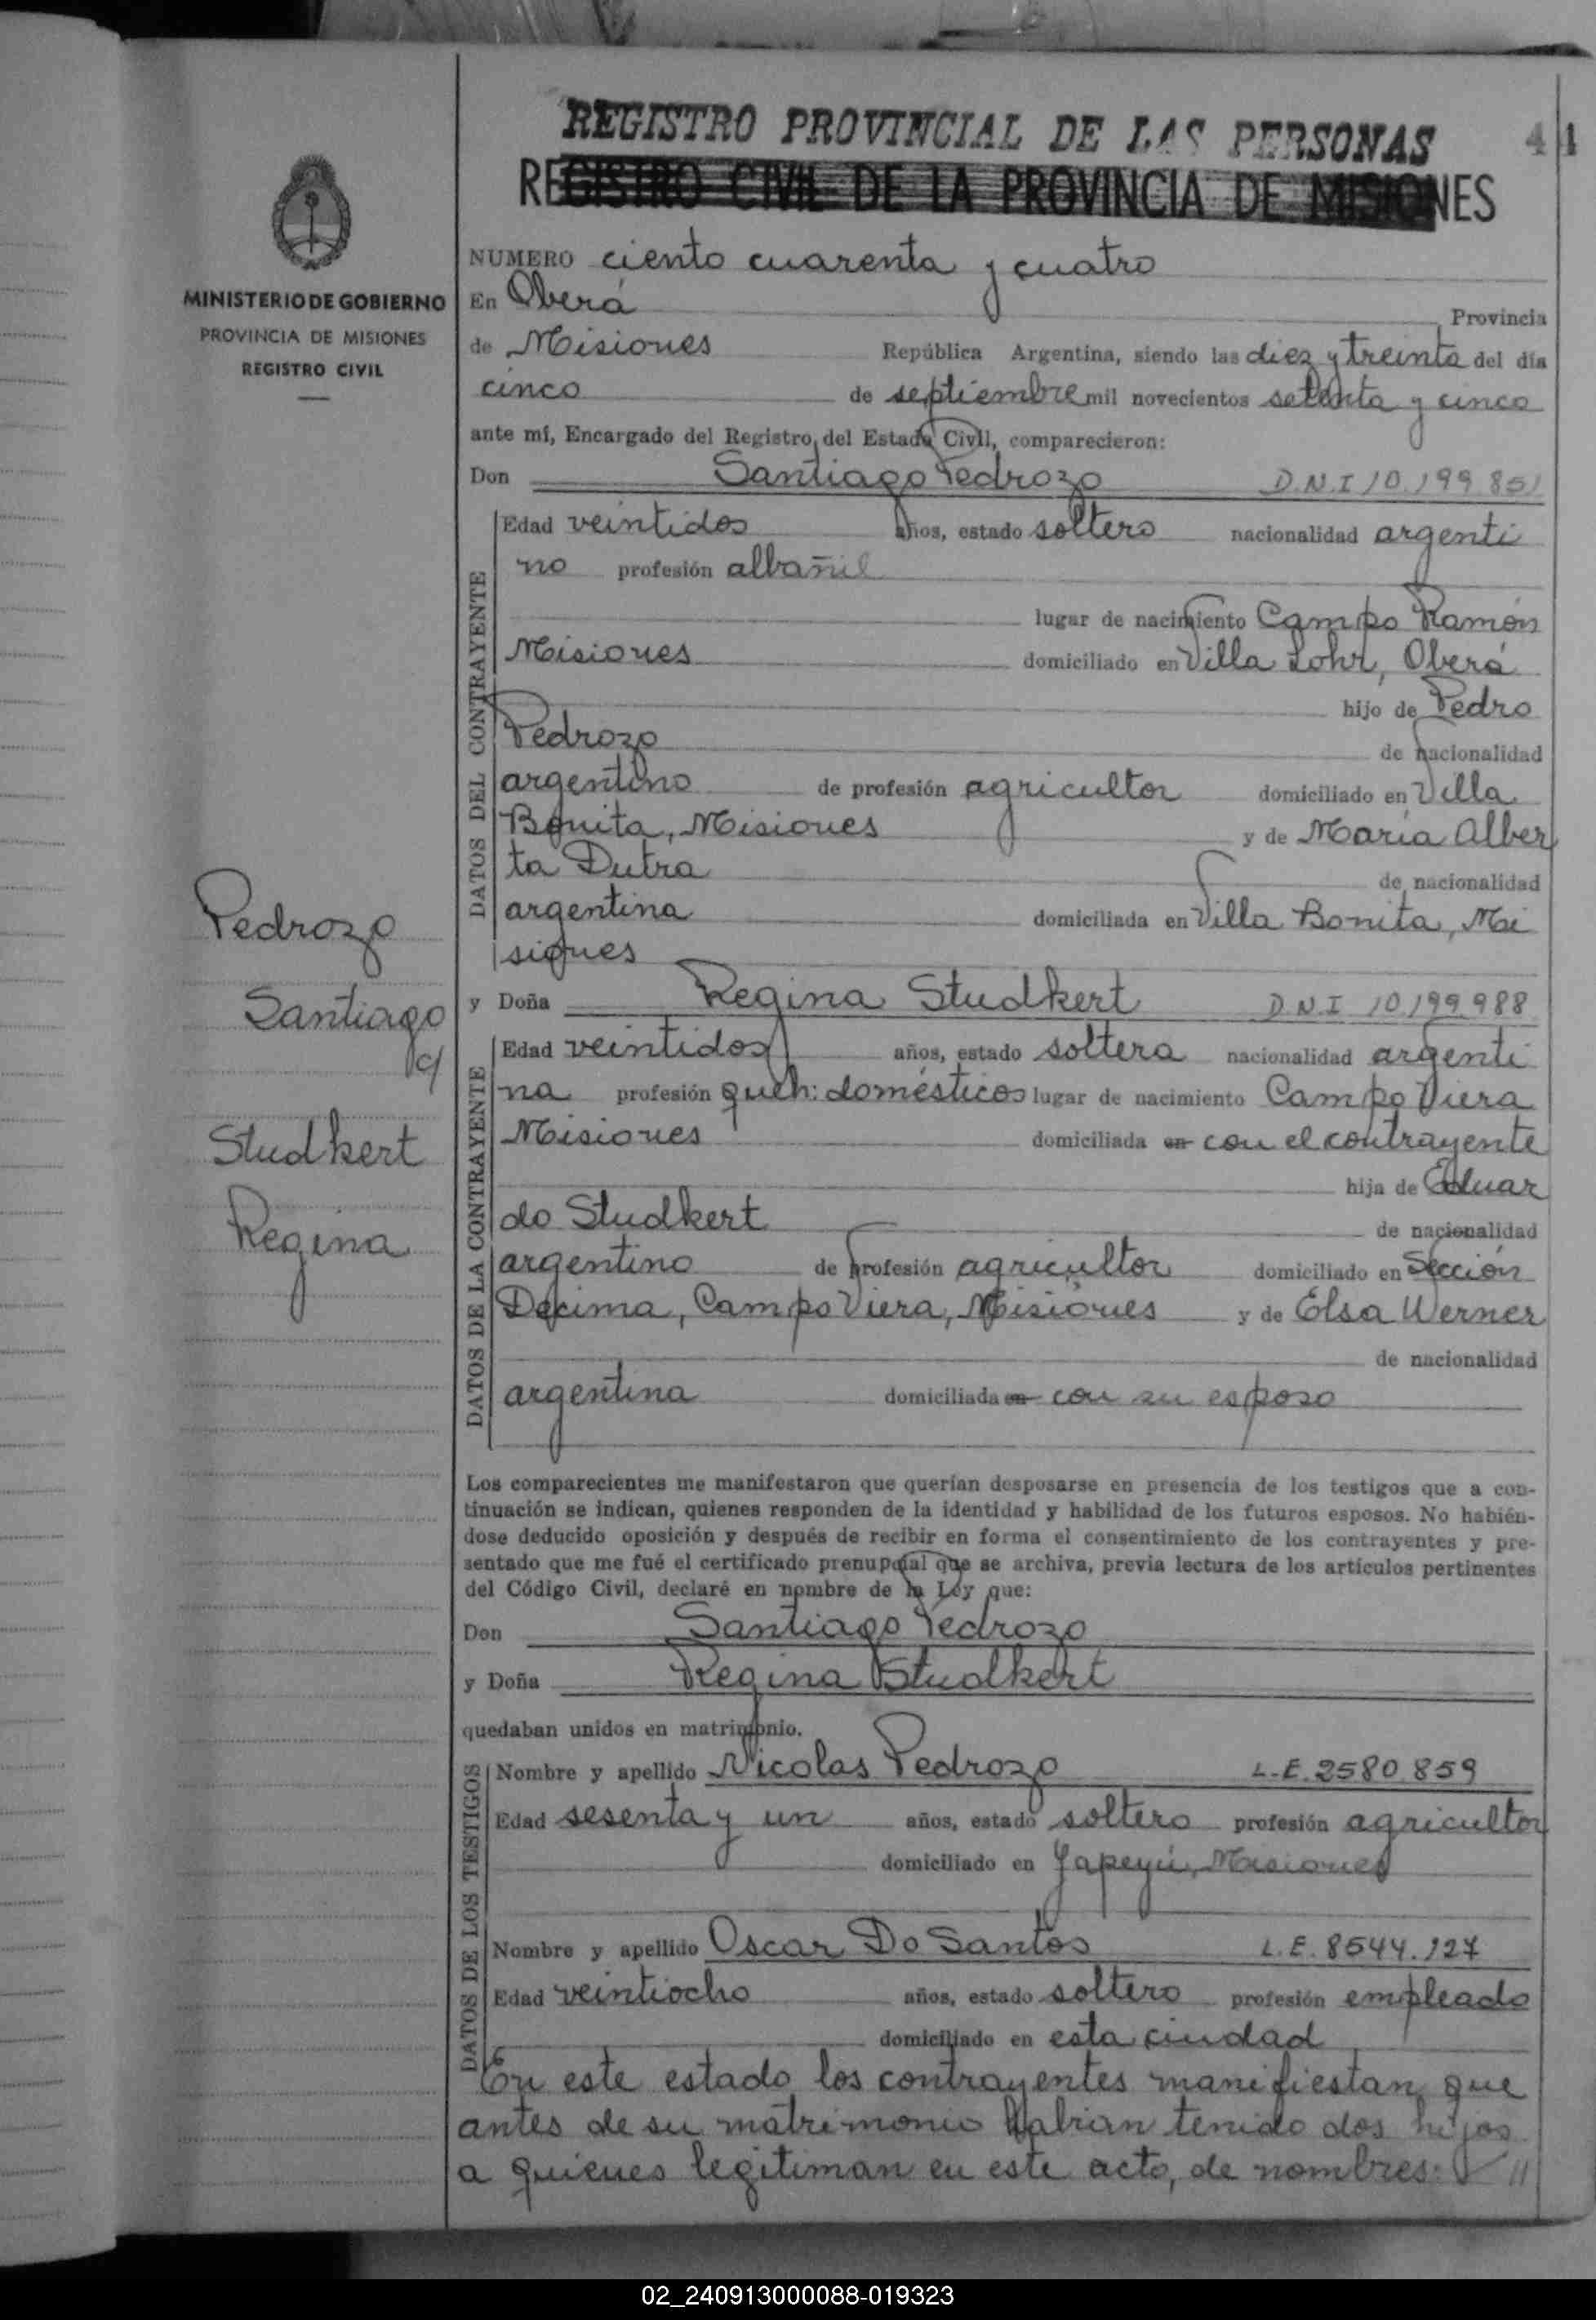 REGISTRO PROVINCIAL DE LAS PERSONAS
41
REGISTRO CIVIL DE LA PROVINCIA DE MISIONES
MINISTERIO DE GOBIERNO
PROVINCIA DE MISIONES
REGISTRO CIVIL
Pedrozo
Santiago
c/
Studkert
Regina
NUMERO ciento cuarenta y cuatro
En Oberá Provincia
de Misiones República Argentina, siendo las diez y treinta del día
cinco de septiembre mil novecientos setenta y cinco
ante mí, Encargado del Registro del Estado Civil, comparecieron:
Don Santiago Pedrozo D.N.I 10.199.851
DATOS DEL CONTRAYENTE
Edad veintidos años, estado soltero nacionalidad argenti
no profesión albañil
lugar de nacimiento Campo Ramón
Misiones domiciliado en Villa Lohr, Oberá
hijo de Pedro
Pedrozo de nacionalidad
argentino de profesión agricultor domiciliado en Villa
Bonita, Misiones y de María Alber
ta Dutra de nacionalidad
argentina domiciliada en Villa Bonita, Mi
siones
y Doña Regina Studkert D.N.I 10.199.988
DATOS DE LA CONTRAYENTE
Edad veintidos años, estado soltera nacionalidad argenti
na profesión queh: domésticos lugar de nacimiento Campo Viera
Misiones domiciliada en con el contrayente
hija de Eduar
do Studkert de nacionalidad
argentino de profesión agricultor domiciliado en Sección
Decima, Campo Viera, Misiones y de Elsa Werner
de nacionalidad
argentina domiciliada en con su esposo
Los comparecientes me manifestaron que querían desposarse en presencia de los testigos que a con-
tinuación se indican, quienes responden de la identidad y habilidad de los futuros esposos. No habién-
dose deducido oposición y después de recibir en forma el consentimiento de los contrayentes y pre-
sentado que me fué el certificado prenupcial que se archiva, previa lectura de los artículos pertinentes
del Código Civil, declaré en nombre de la Ley que:
Don Santiago Pedrozo
y Doña Regina Studkert
quedaban unidos en matrimonio.
DATOS DE LOS TESTIGOS
Nombre y apellido Nicolas Pedrozo L.E. 2580.859
Edad sesenta y un años, estado soltero profesión agricultor
domiciliado en Yapeyú, Misiones
Nombre y apellido Oscar Do Santos L.E. 8544.127
Edad veintiocho años, estado soltero profesión empleado
domiciliado en esta ciudad
En este estado los contrayentes manifiestan que
antes de su matrimonio habian tenido dos hijos
a quienes legitiman en este acto, de nombres: //
02_240913000088-019323